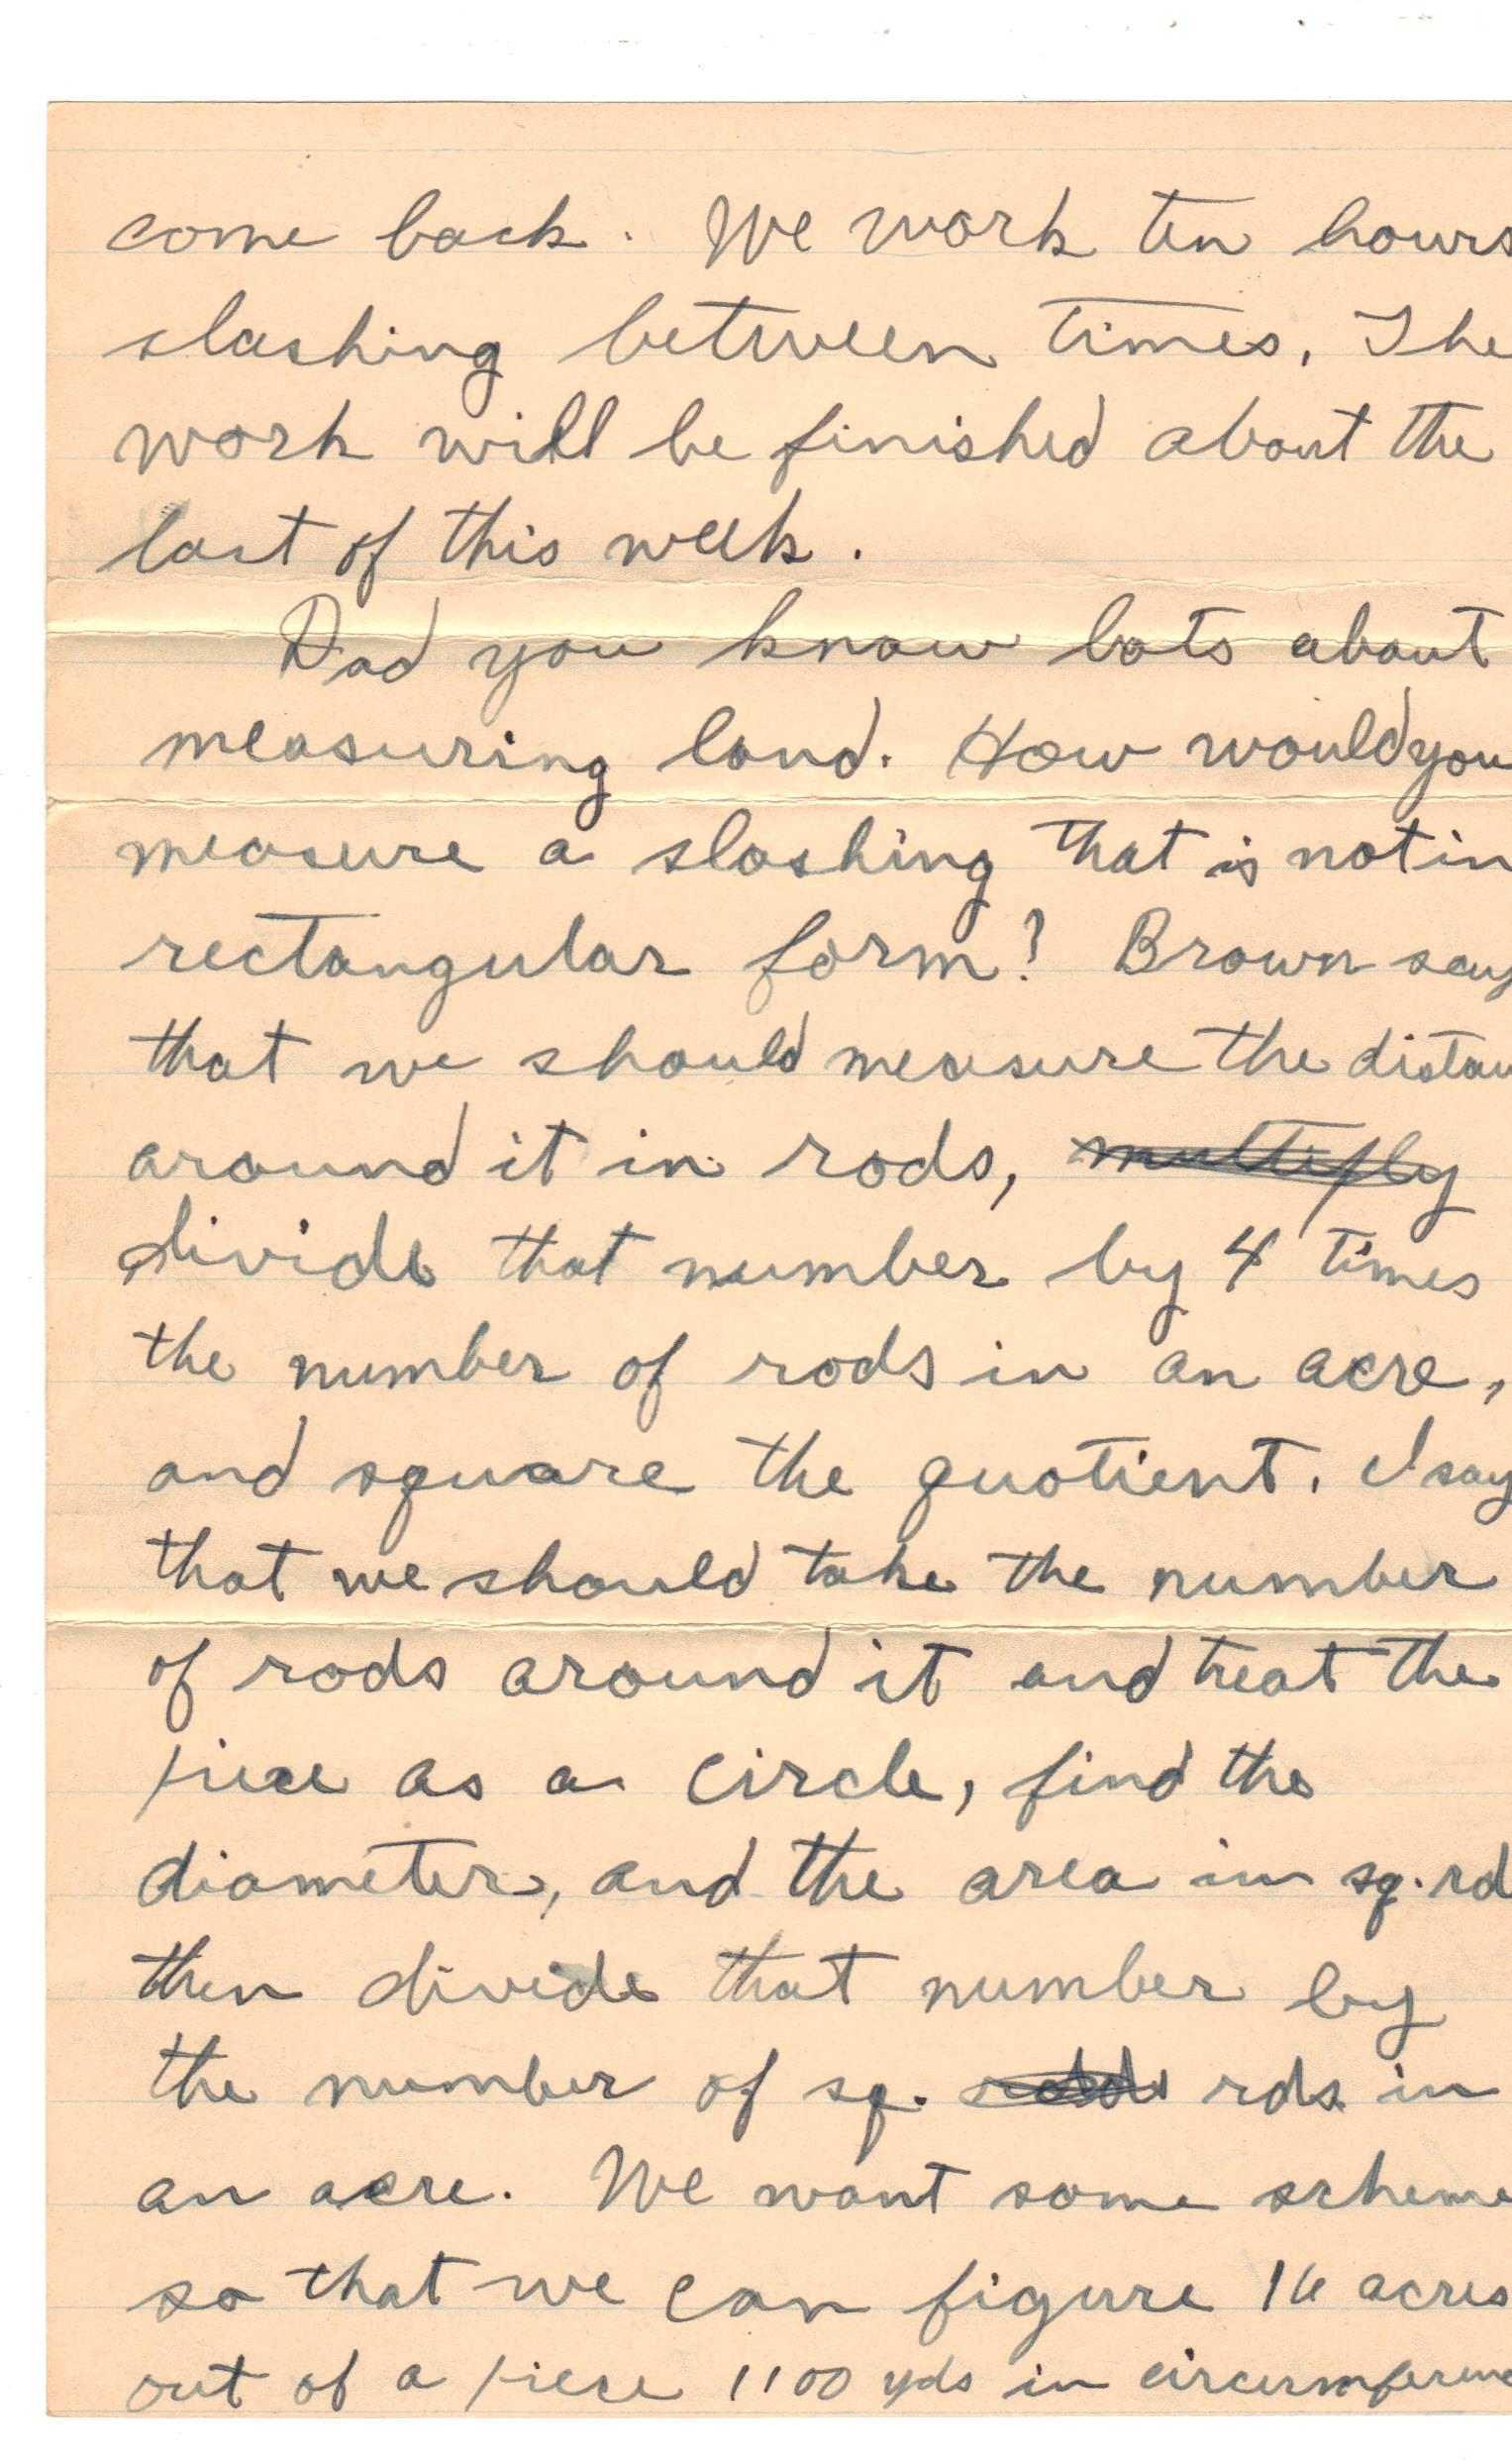 come back. We work ten hours
slashing between times. The
work will be finished about the
last of this week.
Dad you know lots about
measuring land. How would you
measure a slashing that is not in
rectangular form? Brown say
that we should measure the distan
around it in rods, multiply
divide that number by 4 times
the number of rods in an acre,
and square the quotient. I say
that we should take the number
of rods around it and treat the
piece as a circle, find the
diameter, and the area in sq. rd
then divide that number by
the number of sq. rds in
an acre. We want some scheme
so that we can figure 16 acres
out of a piece 1100 yds in circumferenc